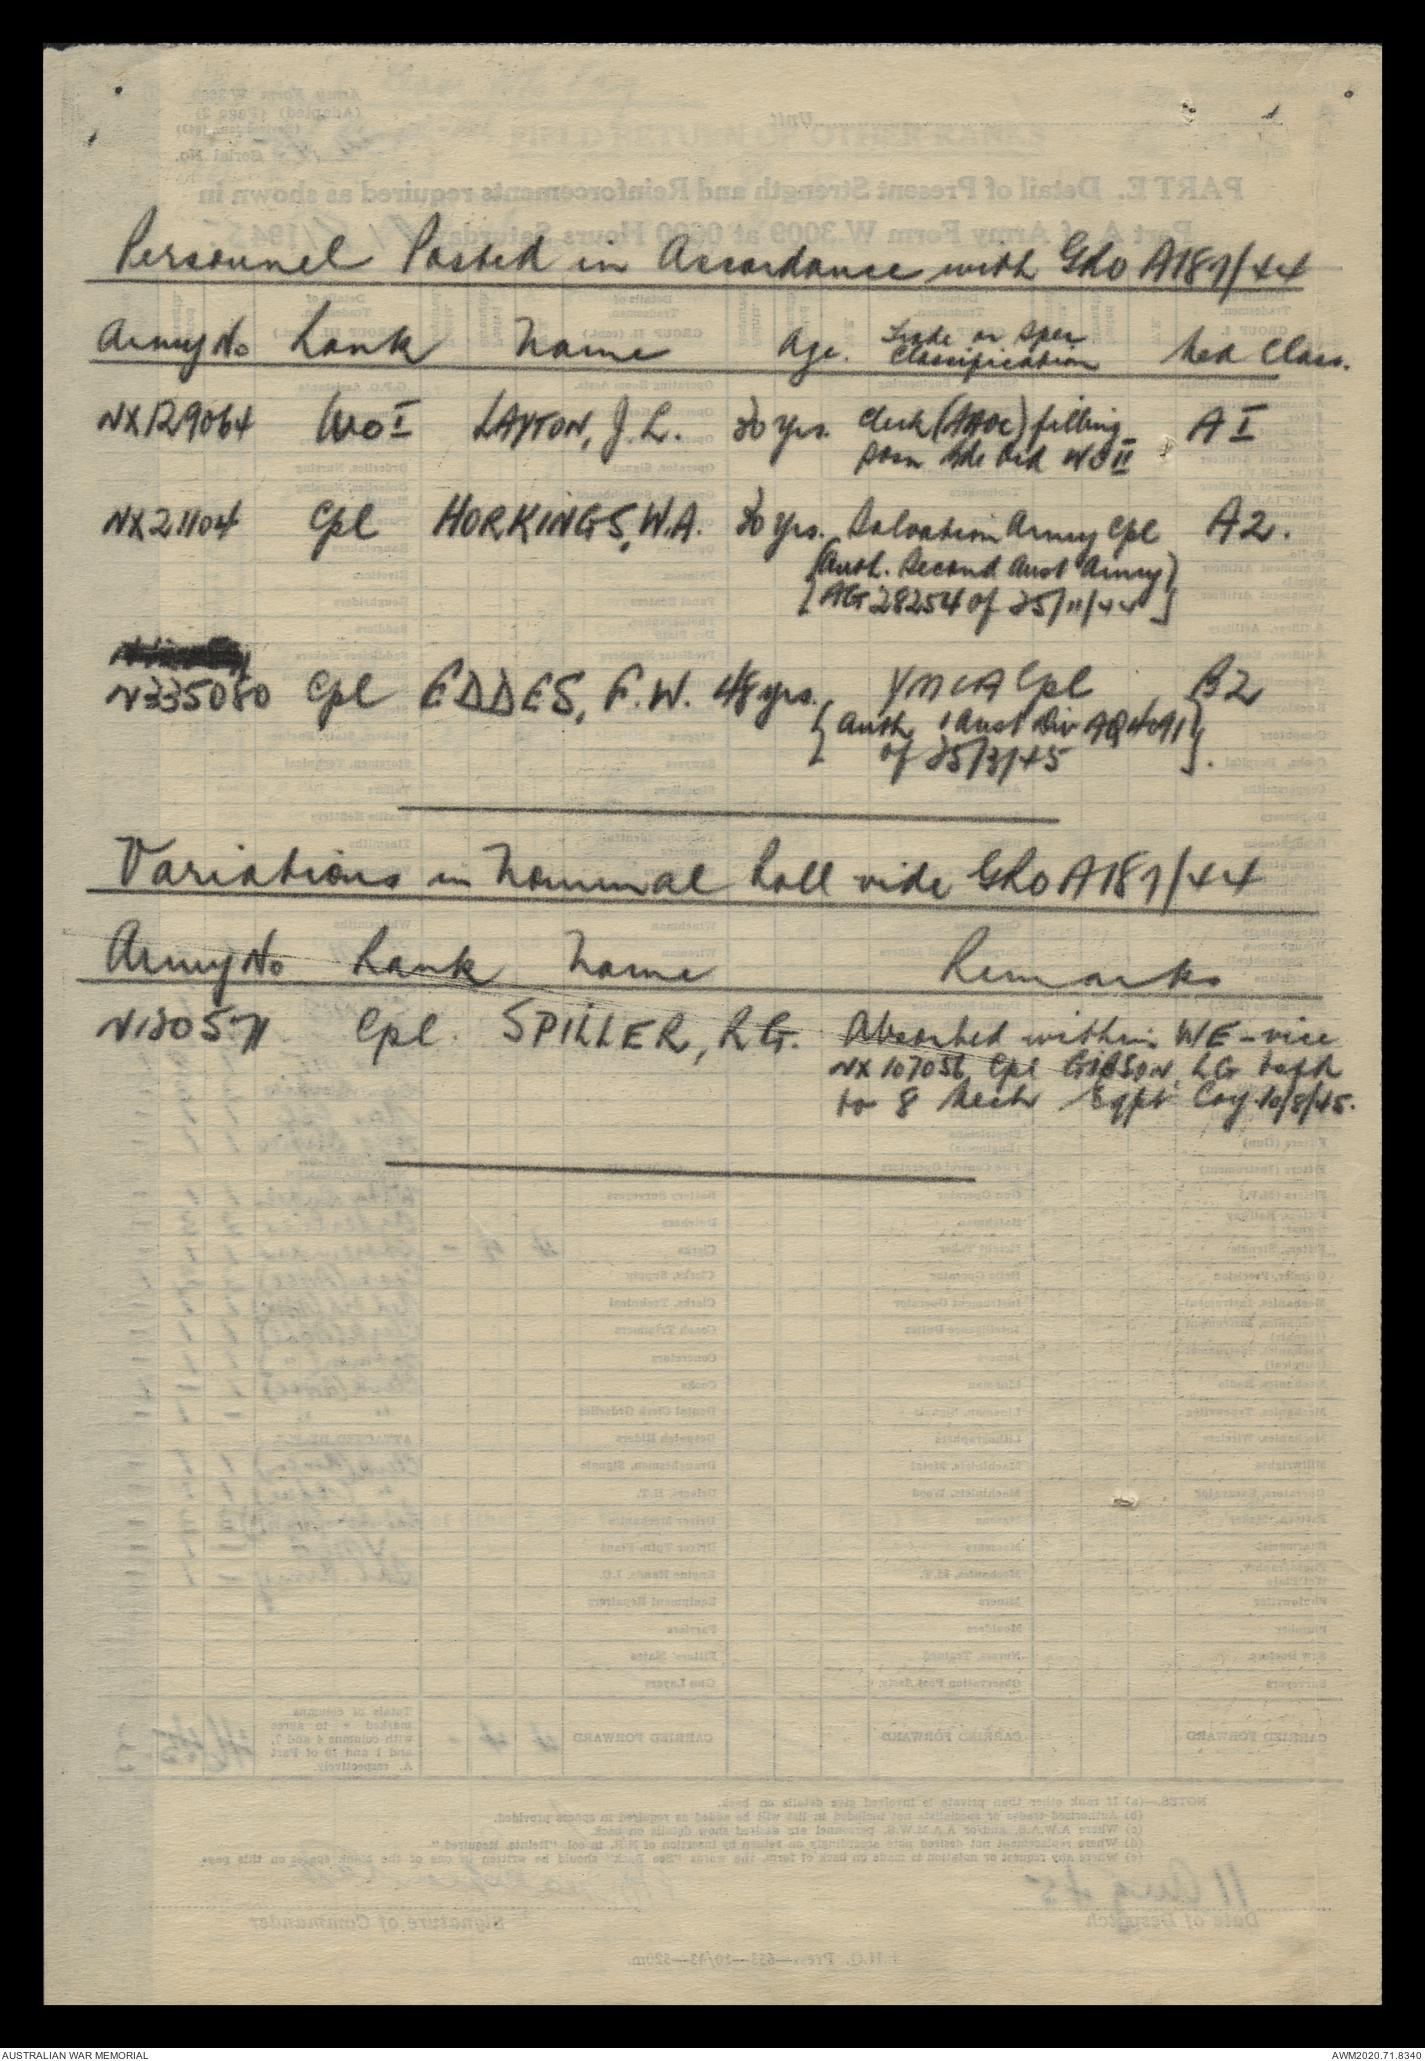 Personnel Posted in Accordance with GRO A187/44
Army No Rank Name Age. Trade or Spec Classification Med Class.
NX129064 WO I LAYTON, J.L. 30 yrs. Clerk (AAOC) filling A I
posn Sde Ord WO II
NX21104 Cpl HORKINGS, W.A. 30 yrs. Salvation Army Cpl A2.
(Auth. Second Aust Army)
[AG 28254 of 25/11/44]
N335080 Cpl EDDES, F.W. 48 yrs. YMCA Cpl B2
{Auth 1 Aust Div AQ4091
of 25/3/45}.
Variations in Nominal Roll vide GRO A187/44
Army No Rank Name Remarks
N130571 Cpl. SPILLER, R.G. Absorbed within WE - vice
NX107056 Cpl GIBSON, LG tsfd
to 8 Mech Eqpt Coy 10/8/45.
AUSTRALIAN WAR MEMORIAL AWM2020.71.8340